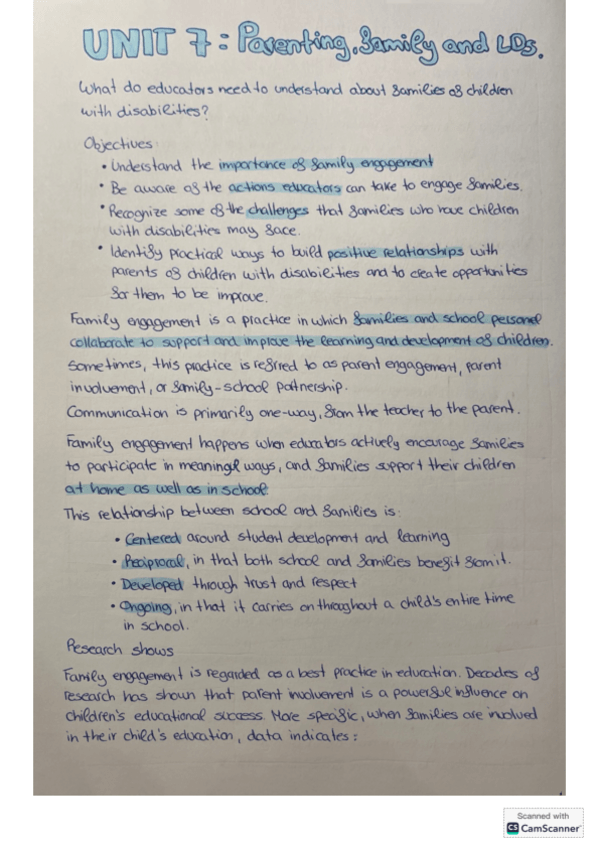 UNIT 7: Parenting, Family and LDs.
What do educators need to understand about families of children
with disabilities?
Objectives:
• Understand the importance of family engagement
• Be aware of the actions educators can take to engage families.
• Recognize some of the challenges that families who have children
with disabilities may face.
• Identify practical ways to build positive relationships with
parents of children with disabilities and to create opportunities
for them to be improve.
Family engagement is a practice in which families and school personel
collaborate to support and improve the learning and development of children.
Sometimes, this practice is referred to as parent engagement, parent
involvement, or family-school partnership.
Communication is primarily one-way, from the teacher to the parent.
Family engagement happens when educators actively encourage families
to participate in meaningful ways, and families support their children
at home as well as in school
This relationship between school and families is:
• Centered around student development and learning
• Reciprocal, in that both school and families benefit from it.
• Developed through trust and respect
• Ongoing, in that it carries on throughout a child's entire time
in school.
Research shows
Family engagement is regarded as a best practice in education. Decades of
research has shown that parent involvement is a powerful influence on
children's educational success. More specific, when families are involved
in their child's education, data indicates:
Scanned with
CS CamScanner